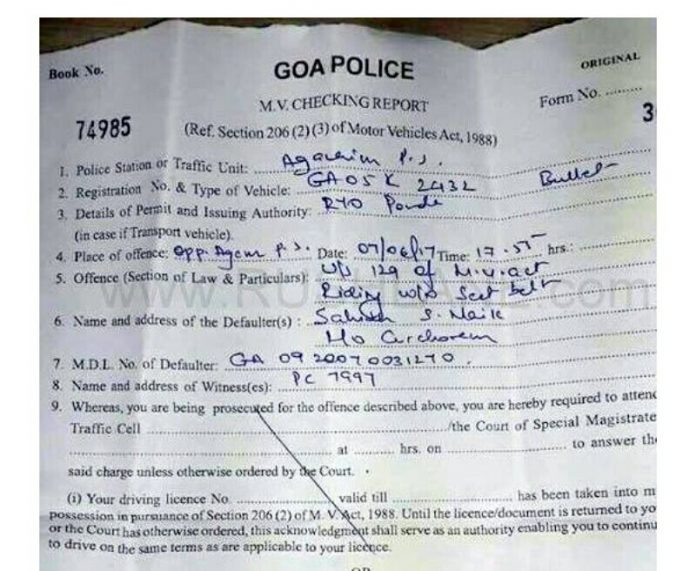 Book No.
GOA POLICE
ORIGINAL
M.V. CHECKING REPORT
Form No. .........
74985
(Ref. Section 206 (2) (3) of Motor Vehicles Act, 1988)
3
1. Police Station or Traffic Unit: Agacaim P.S.
2. Registration No. & Type of Vehicle: GA05K 2432 Bullet
3. Details of Permit and Issuing Authority: RTO Ponda
(in case if Transport vehicle).
4. Place of offence: Opp. Agcm P.S. Date: 07/06/17 Time: 17.55 hrs.:
5. Offence (Section of Law & Particulars): U/s 129 of M.V. act
Riding w/o Seat belt
6. Name and address of the Defaulter(s) : S. Naik
7. M.D.L. No. of Defaulter: GA 09 20070031270.
8. Name and address of Witness(es): PC 7997
9. Whereas, you are being prosecuted for the offence described above, you are hereby required to attend
Traffic Cell ........ /the Court of Special Magistrate
........ at ........ hrs. on ........ to answer the
said charge unless otherwise ordered by the Court.
(i) Your driving licence No. ........ valid till ........ has been taken into m
possession in pursuance of Section 206 (2) of M. V. Act, 1988. Until the licence/document is returned to yo
or the Court has otherwise ordered, this acknowledgment shall serve as an authority enabling you to continu
to drive on the same terms as are applicable to your licence.
OR